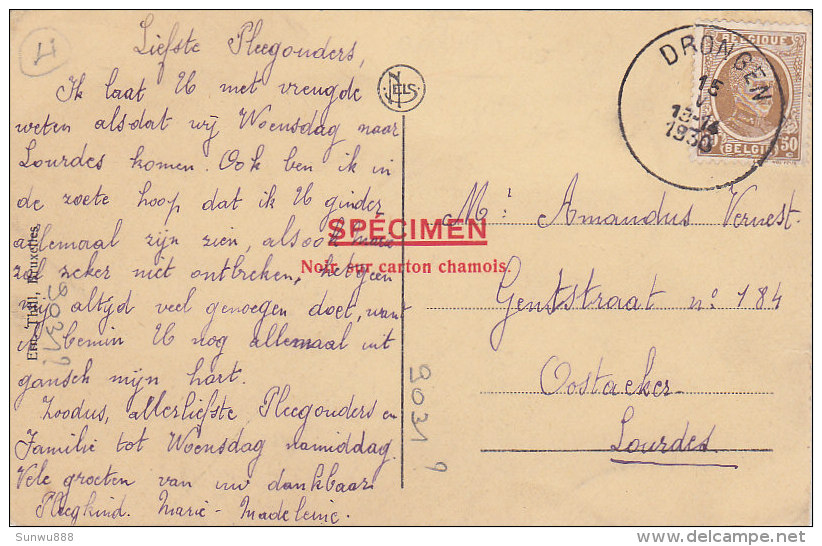 Li
Liefste Pleegouders,
Ik laat U met vreugde
weten alsdat wij Woensdag naar
Lourdes komen. Ook ben ik in
de zoete hoop dat ik U ginder
allemaal zijn zien, alsook
zal zeker niet ontbreken, hetgeen
mij altijd veel genoegen doet, want
ik bemin U nog allemaal uit
gansch mijn hart.
Zoodus, allerliefste Pleegouders en
Familie tot Woensdag namiddag.
Vele groeten van uw dankbaar
Pleegkind. Marie-Madeleine.
Ern. Thill, Bruxelles.
3031 9
NELS
SPÉCIMEN
Noir sur carton chamois.
3031 9
DRONGEN
15
V
13-14
1930
BELGIQUE
BELGIË
50
Mr Amandus Vervest.
Gentstraat no 184
Oostacker
Lourdes.
Sunwu888
delcampe.net